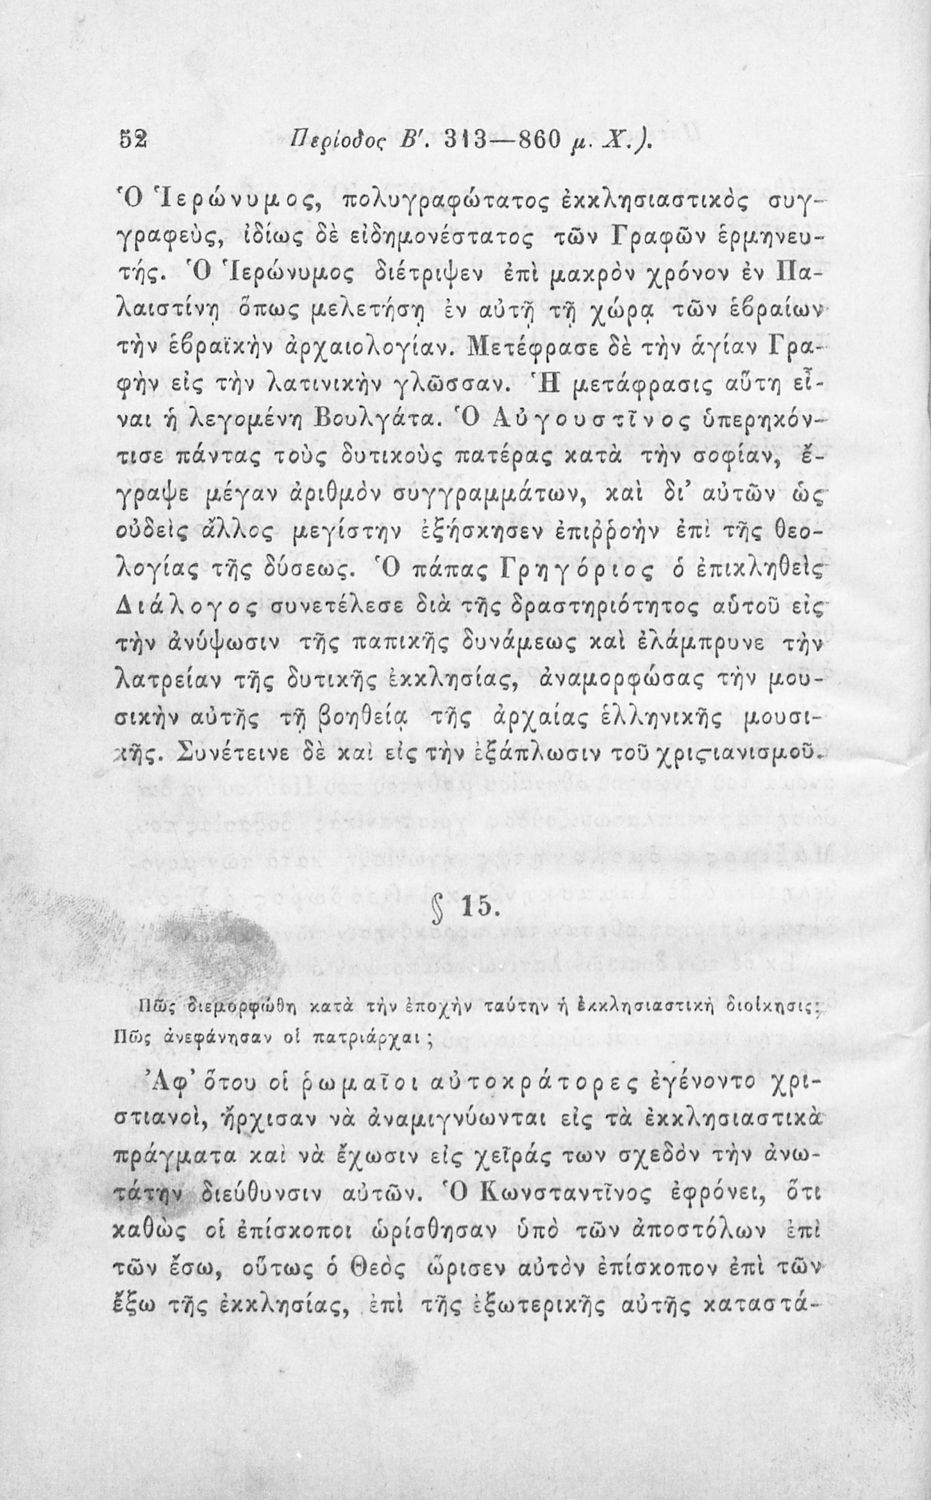 52 Περίοδος Β'. 313—860 μ. Χ.).
Ὁ Ἱερώνυμος, πολυγραφώτατος ἐκκλησιαστικὸς συγ-
γραφεὺς, ἰδίως δὲ εἰδημονέστατος τῶν Γραφῶν ἑρμηνευ-
τής. Ὁ Ἱερώνυμος διέτριψεν ἐπὶ μακρὸν χρόνον ἐν Πα-
λαιστίνῃ ὅπως μελετήσῃ ἐν αὐτῇ τῇ χώρᾳ τῶν ἑβραίων
τὴν ἑβραϊκὴν ἀρχαιολογίαν. Μετέφρασε δὲ τὴν ἁγίαν Γρα-
φὴν εἰς τὴν λατινικὴν γλῶσσαν. Ἡ μετάφρασις αὕτη εἶ-
ναι ἡ λεγομένη Βουλγάτα. Ὁ Αὐγουστῖνος ὑπερηκόν-
τισε πάντας τοὺς δυτικοὺς πατέρας κατὰ τὴν σοφίαν, ἔ-
γραψε μέγαν ἀριθμὸν συγγραμμάτων, καὶ δι' αὐτῶν ὡς
οὐδεὶς ἄλλος μεγίστην ἐξήσκησεν ἐπιῤῥοὴν ἐπὶ τῆς θεο-
λογίας τῆς δύσεως. Ὁ πάπας Γρηγόριος ὁ ἐπικληθεὶς
Διάλογος συνετέλεσε διὰ τῆς δραστηριότητος αὑτοῦ εἰς
τὴν ἀνύψωσιν τῆς παπικῆς δυνάμεως καὶ ἐλάμπρυνε τὴν
λατρείαν τῆς δυτικῆς ἐκκλησίας, ἀναμορφώσας τὴν μου-
σικὴν αὐτῆς τῇ βοηθείᾳ τῆς ἀρχαίας ἑλληνικῆς μουσι-
κῆς. Συνέτεινε δὲ καὶ εἰς τὴν ἐξάπλωσιν τοῦ χριςτιανισμοῦ.
§ 15.
Πῶς διεμορφώθη κατὰ τὴν ἐποχὴν ταύτην ἡ ἐκκλησιαστικὴ διοίκησις;
Πῶς ἀνεφάνησαν οἱ πατριάρχαι ;
Ἀφ' ὅτου οἱ ῥωμαῖοι αὐτοκράτορες ἐγένοντο χρι-
στιανοὶ, ἤρχισαν νὰ ἀναμιγνύωνται εἰς τὰ ἐκκλησιαστικὰ
πράγματα καὶ νὰ ἔχωσιν εἰς χεῖράς των σχεδὸν τὴν ἀνω-
τάτην διεύθυνσιν αὐτῶν. Ὁ Κωνσταντῖνος ἐφρόνει, ὅτι
καθὼς οἱ ἐπίσκοποι ὡρίσθησαν ὑπὸ τῶν ἀποστόλων ἐπὶ
τῶν ἔσω, οὕτως ὁ Θεὸς ὥρισεν αὐτὸν ἐπίσκοπον ἐπὶ τῶν
ἔξω τῆς ἐκκλησίας, ἐπὶ τῆς ἐξωτερικῆς αὐτῆς καταστά-